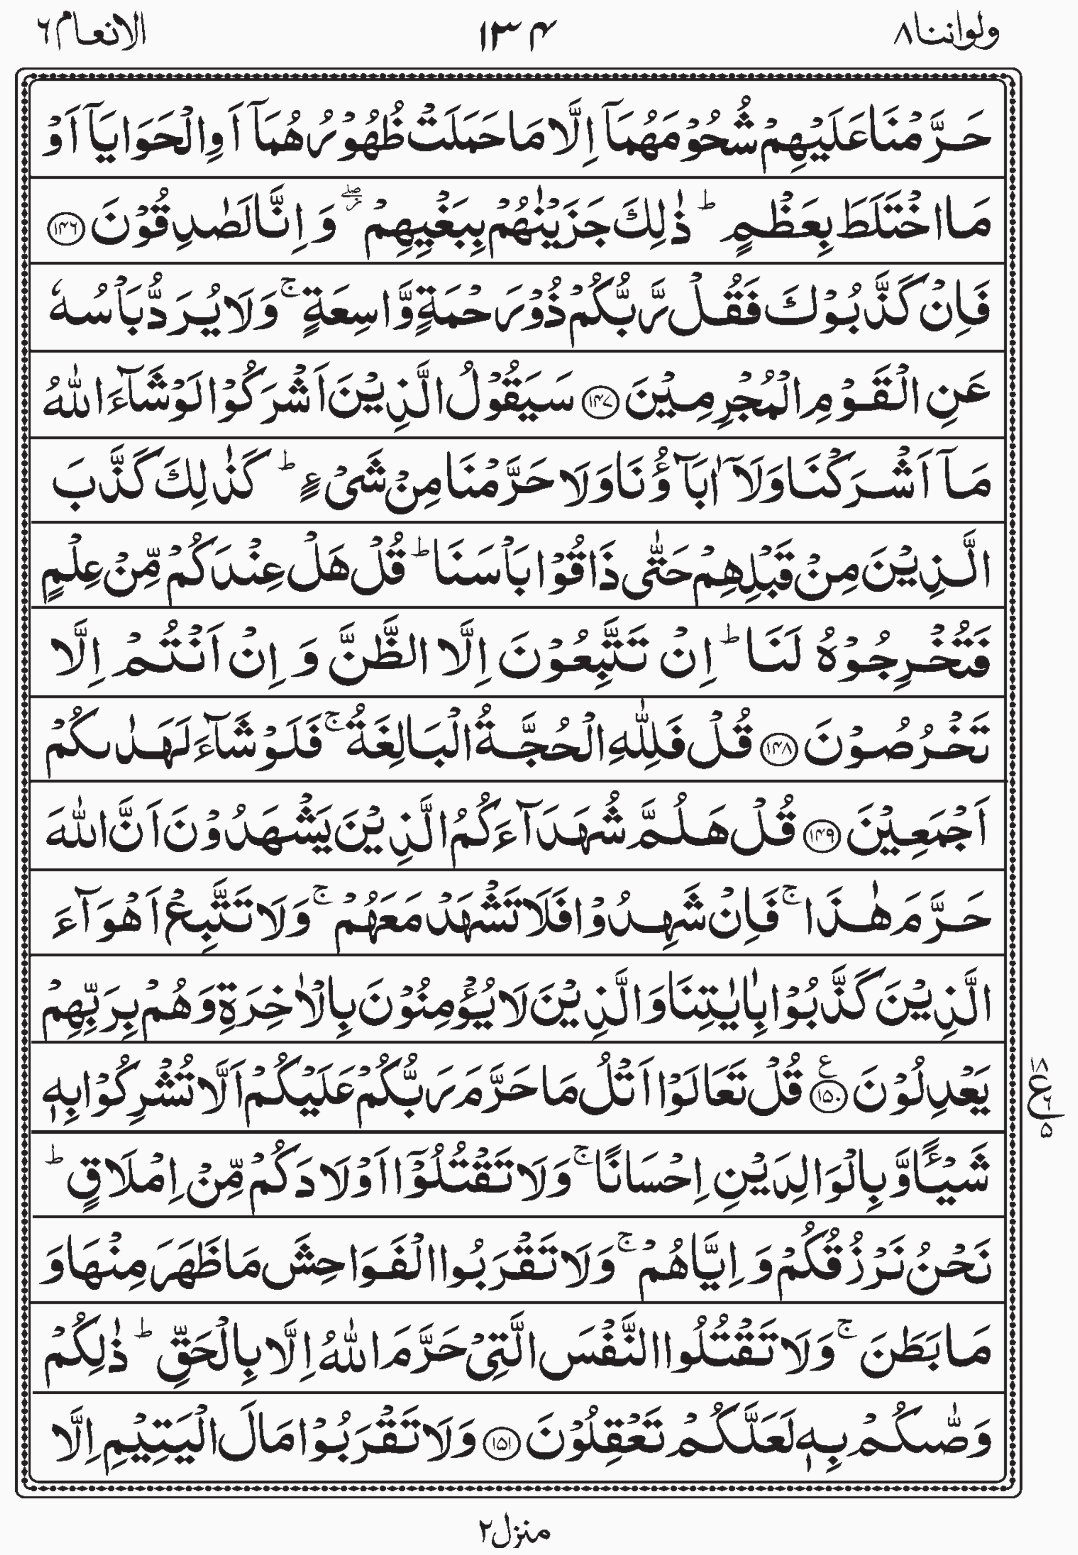 ولواننا٨ ١٣٤ الانعام٦
حَرَّمْنَا عَلَيْهِمْ شُحُوْمَهُمَاۤ اِلَّا مَا حَمَلَتْ ظُهُوْرُهُمَاۤ اَوِ الْحَوَايَاۤ اَوْ
مَا اخْتَلَطَ بِعَظْمٍ ؕ ذٰلِكَ جَزَيْنٰهُمْ بِبَغْيِهِمْ ۖ وَ اِنَّا لَصٰدِقُوْنَ ﴿۱۴۶﴾
فَاِنْ كَذَّبُوْكَ فَقُلْ رَّبُّكُمْ ذُوْ رَحْمَةٍ وَّاسِعَةٍ ۚ وَلَا يُرَدُّ بَاْسُهٗ
عَنِ الْقَوْمِ الْمُجْرِمِيْنَ ﴿۱۴۷﴾ سَيَقُوْلُ الَّذِيْنَ اَشْرَكُوْا لَوْ شَآءَ اللّٰهُ
مَاۤ اَشْرَكْنَا وَلَاۤ اٰبَآؤُنَا وَلَا حَرَّمْنَا مِنْ شَىْءٍ ؕ كَذٰلِكَ كَذَّبَ
الَّذِيْنَ مِنْ قَبْلِهِمْ حَتّٰى ذَاقُوْا بَاْسَنَا ؕ قُلْ هَلْ عِنْدَكُمْ مِّنْ عِلْمٍ
فَتُخْرِجُوْهُ لَنَا ؕ اِنْ تَتَّبِعُوْنَ اِلَّا الظَّنَّ وَ اِنْ اَنْتُمْ اِلَّا
تَخْرُصُوْنَ ﴿۱۴۸﴾ قُلْ فَلِلّٰهِ الْحُجَّةُ الْبَالِغَةُ ۚ فَلَوْ شَآءَ لَهَدٰٮكُمْ
اَجْمَعِيْنَ ﴿۱۴۹﴾ قُلْ هَلُمَّ شُهَدَآءَكُمُ الَّذِيْنَ يَشْهَدُوْنَ اَنَّ اللّٰهَ
حَرَّمَ هٰذَا ۚ فَاِنْ شَهِدُوْا فَلَا تَشْهَدْ مَعَهُمْ ۚ وَلَا تَتَّبِعْ اَهْوَآءَ
الَّذِيْنَ كَذَّبُوْا بِاٰيٰتِنَا وَالَّذِيْنَ لَا يُؤْمِنُوْنَ بِالْاٰخِرَةِ وَهُمْ بِرَبِّهِمْ
يَعْدِلُوْنَ ﴿۱۵۰﴾ ع قُلْ تَعَالَوْا اَتْلُ مَا حَرَّمَ رَبُّكُمْ عَلَيْكُمْ اَلَّا تُشْرِكُوْا بِهٖ
١٨ ع ٦ ٥
شَيْـًٔا وَّ بِالْوَالِدَيْنِ اِحْسَانًا ۚ وَلَا تَقْتُلُوْۤا اَوْلَادَكُمْ مِّنْ اِمْلَاقٍ ؕ
نَحْنُ نَرْزُقُكُمْ وَ اِيَّاهُمْ ۚ وَلَا تَقْرَبُوا الْفَوَاحِشَ مَا ظَهَرَ مِنْهَا وَ
مَا بَطَنَ ۚ وَلَا تَقْتُلُوا النَّفْسَ الَّتِىْ حَرَّمَ اللّٰهُ اِلَّا بِالْحَقِّ ؕ ذٰلِكُمْ
وَصّٰٮكُمْ بِهٖ لَعَلَّكُمْ تَعْقِلُوْنَ ﴿۱۵۱﴾ وَلَا تَقْرَبُوْا مَالَ الْيَتِيْمِ اِلَّا
منزل٢